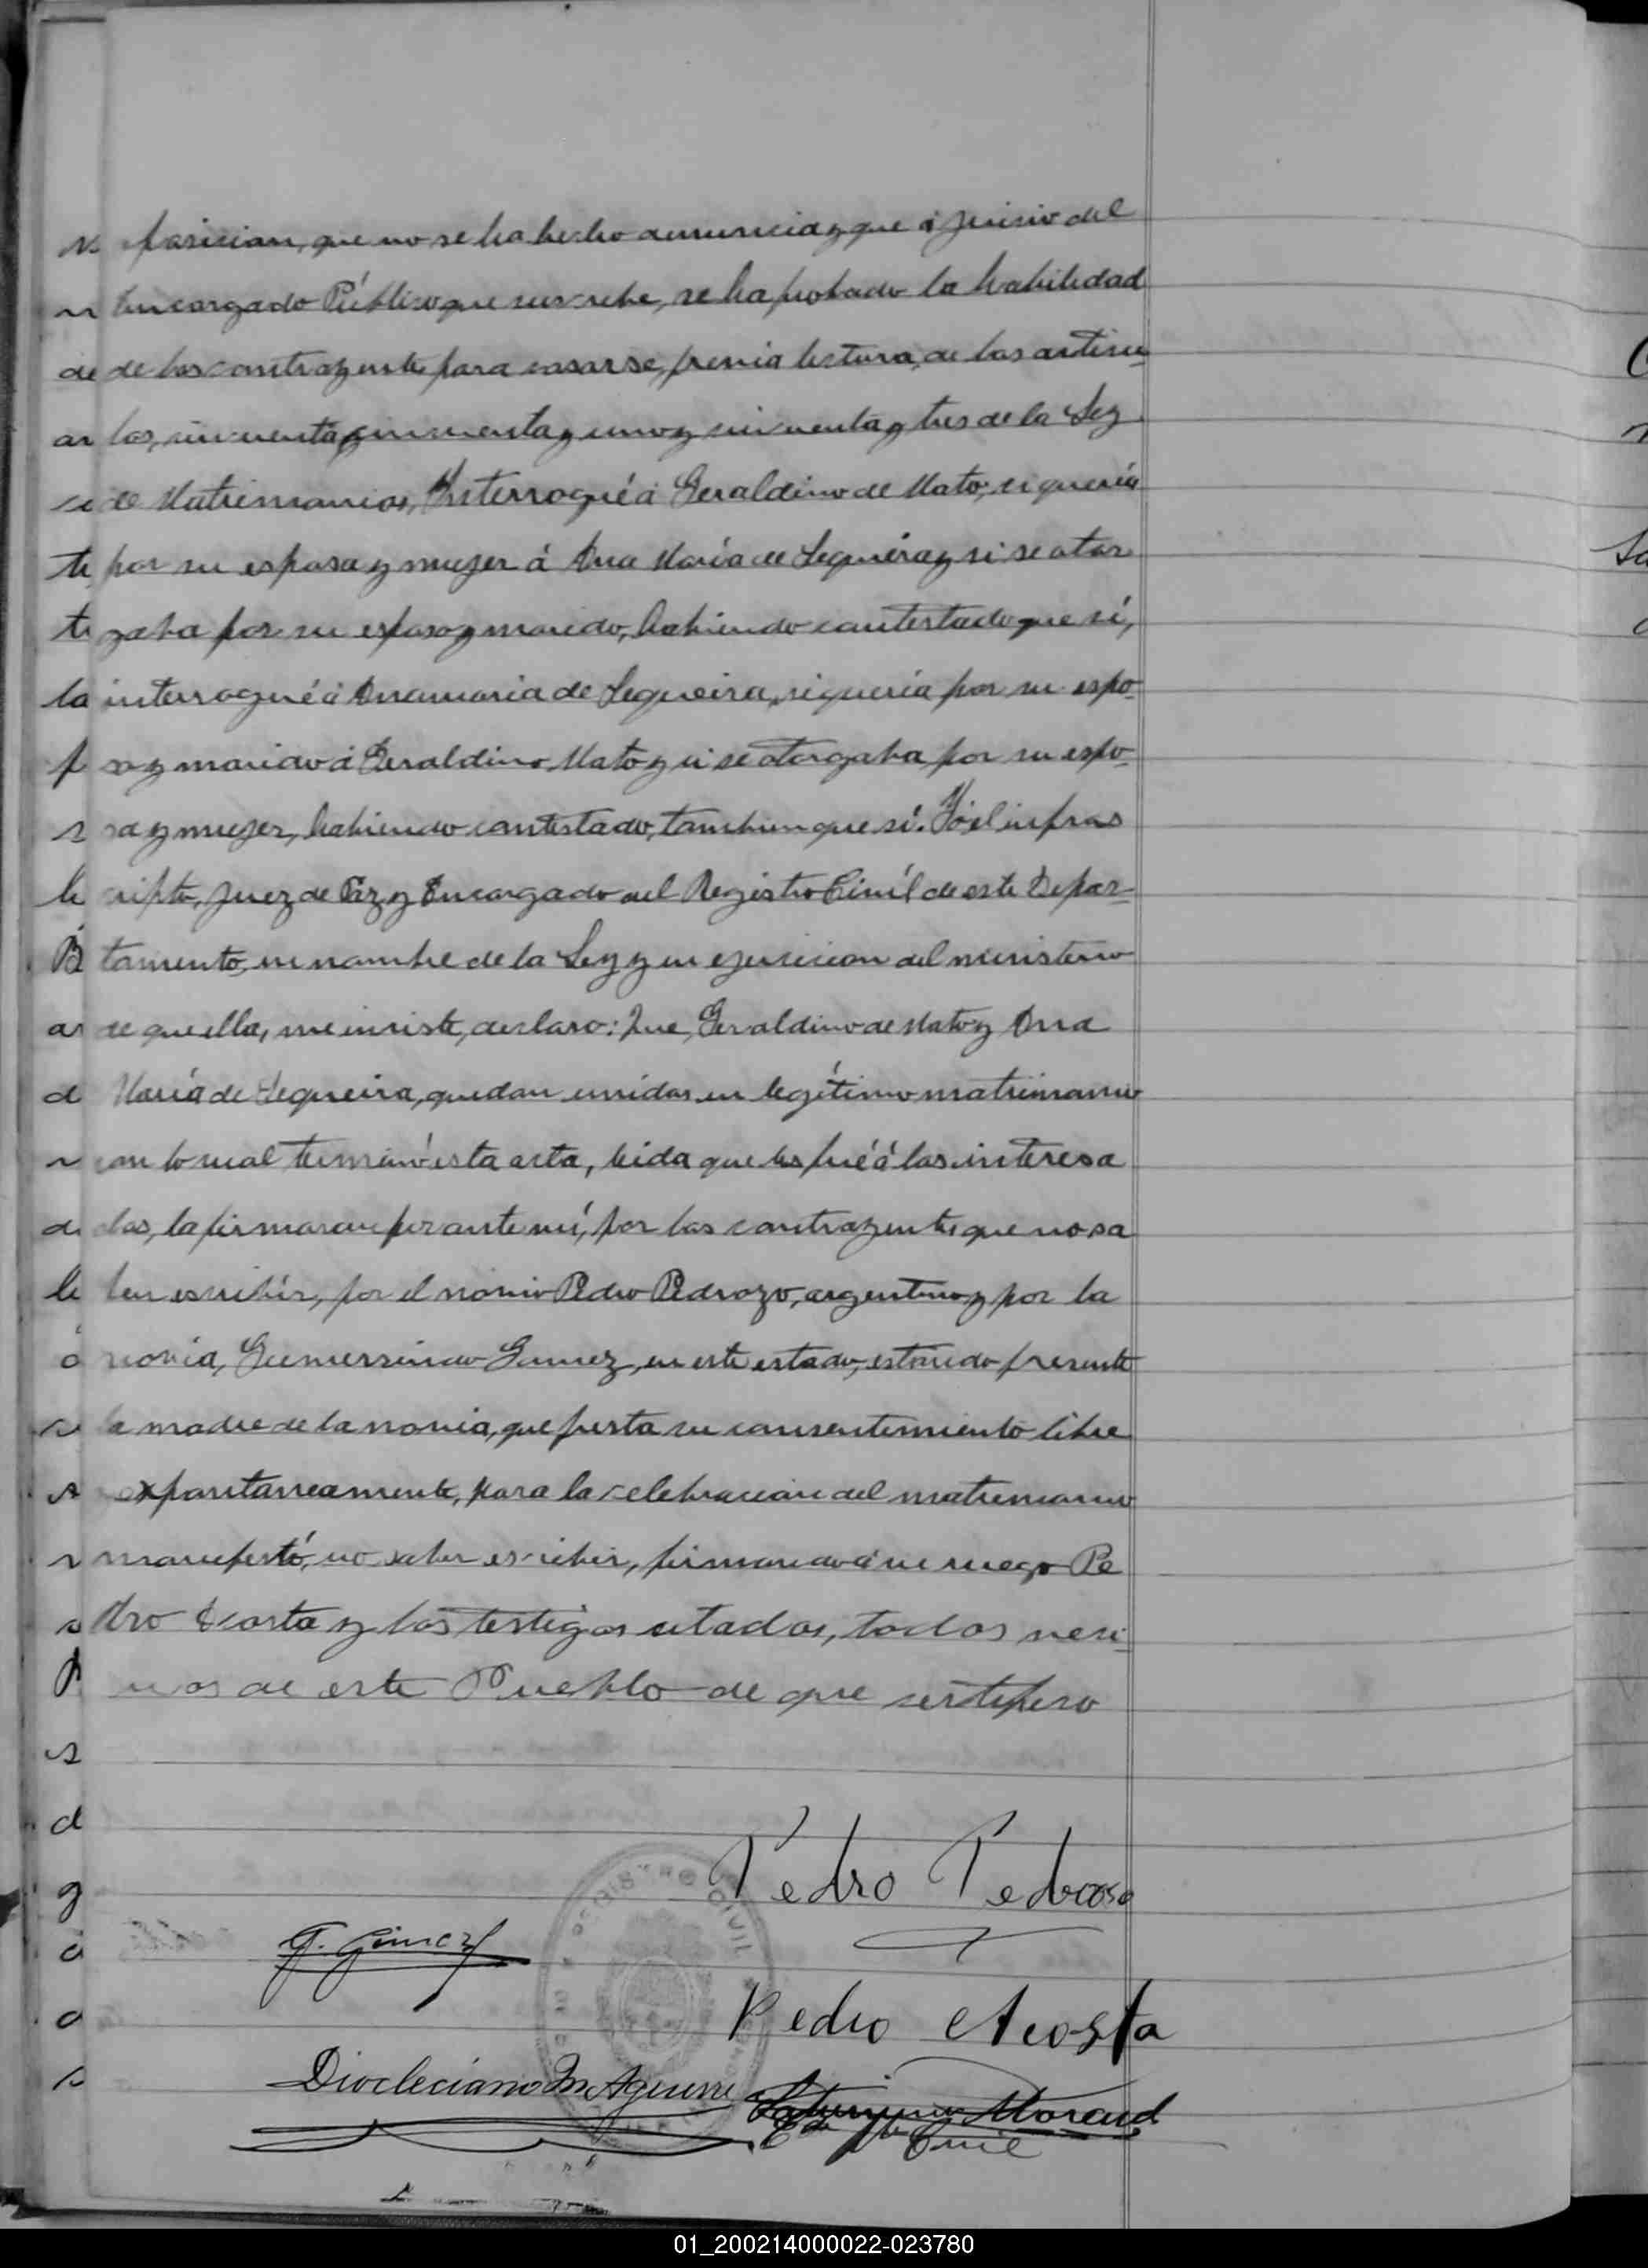 posicion, que no se ha hecho denuncia y que á juicio del
Encargado Público que suscribe, se ha probado la habilidad
de los contrayente para casarse, prévia lectura, de los articu-
los, cincuenta, cincuenta y uno y cincuenta y tres de la Ley
de Matrimonios, Interrogué á Geraldino de Mato, si quería
por su esposa y mujer á Ana María de Sequéira y si se otor
gaba por su esposo y marido, habiendo contestado que sí,
interrogué á Anamaria de Sequeira, si queria por su espo-
so y marido á Geraldino Mato y si se otorgaba por su espo-
sa y mujer, habiendo contestado, tambien que sí. Yó el infras
cripto, Juez de Paz y Encargado del Registro Civíl de este Depar-
tamento, en nombre de la Ley y en ejercicion del ministerio
de que ella, me inviste, declaro: Que, Geraldino de Mato y Ana
María de Sequeira, quedan unidos en legítimo matrimonio
con lo cual terminó esta acta, leida que les fué á los interesa
dos, la firmaron por ante mí, por los contrayentes que no sa
ben escribir, por el novio Pedro Pedrozo, argentino y por la
novia, Gumersindo Gamez, en este estado, estando presente
la madre de la novia, que presta su consentimiento libre
expontaneamente, para la celebracion del matrimonio
manifestó, no saber escribir, firmando á su ruego Pe
dro Acosta y los testigos citados, todos veci-
nos de este Pueblo de que certifico
Pedro Pedroso
G. Gimez
Pedro Acosta
Diocleciano M. Aguirre
Saturnino Morand
Civil
REGISTRO CIVIL
01_200214000022-023780